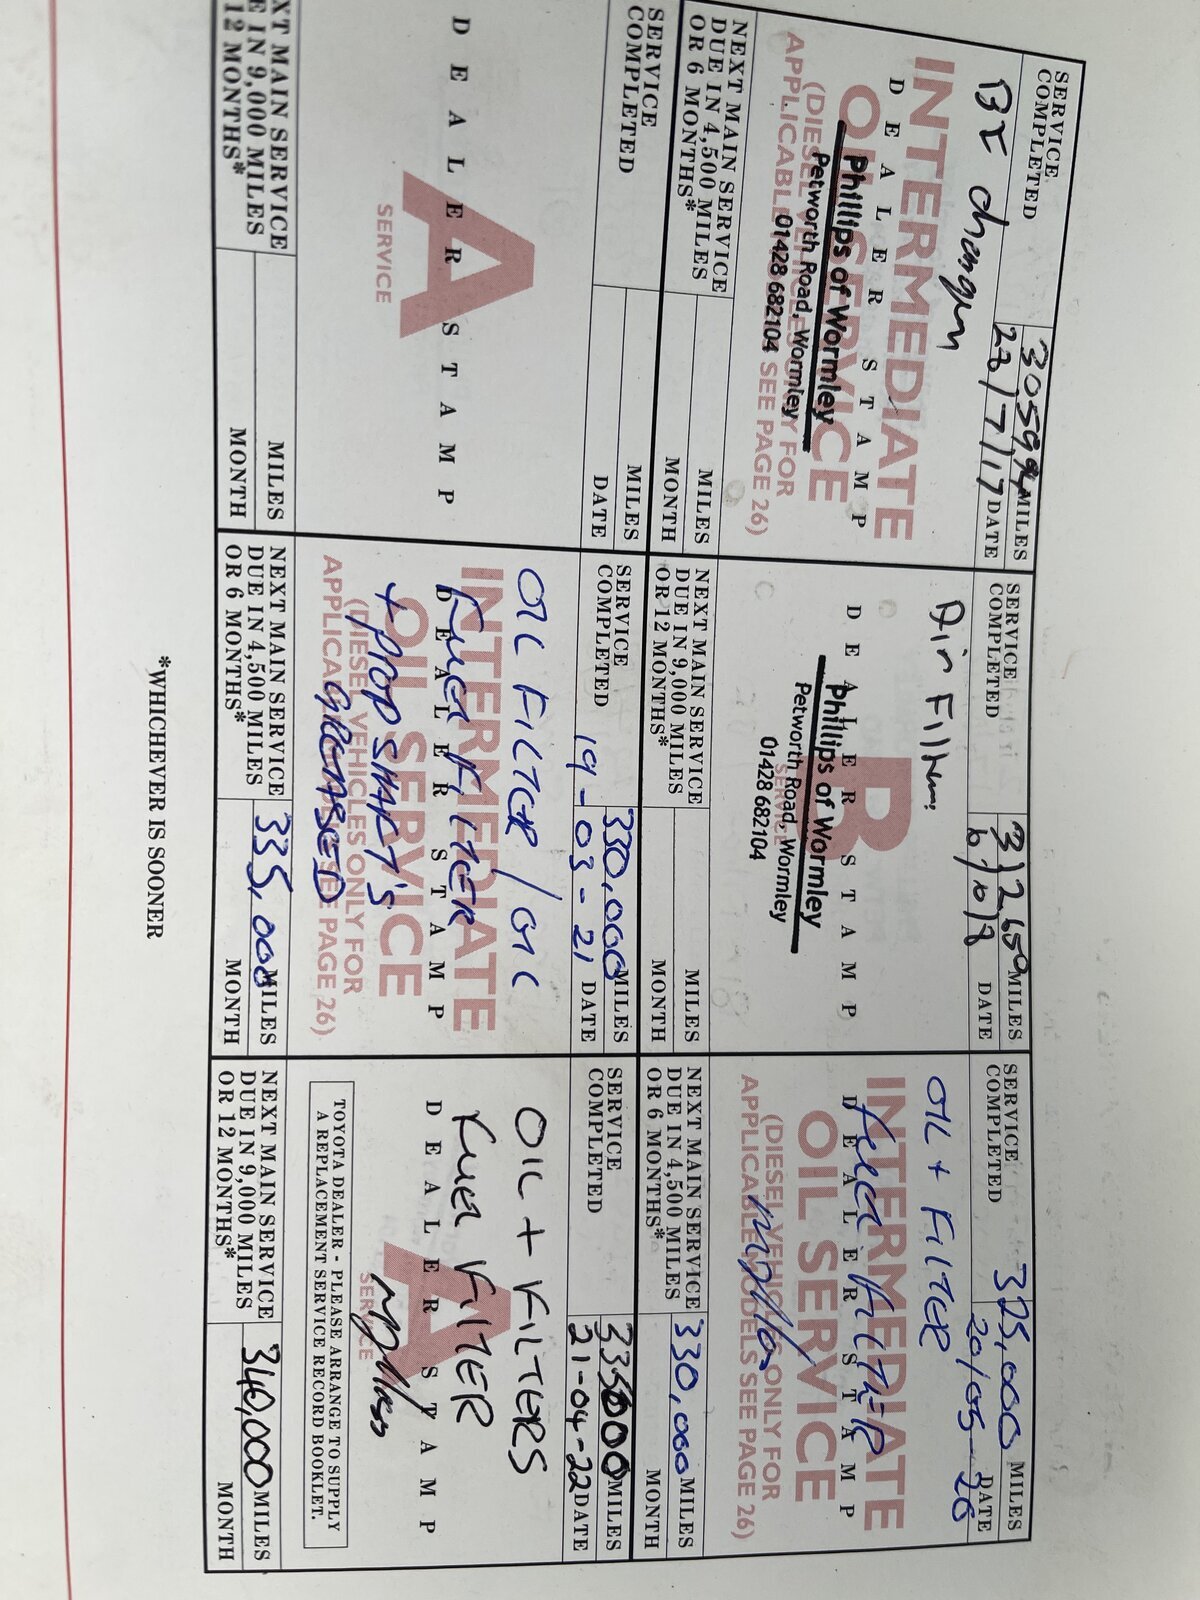 SERVICE COMPLETED
MILES
23/7/17 DATE
BT change
INTERMEDIATE
OIL SERVICE
DEALER STAMP
Phillips of Wormley
Petworth Road, Wormley
01428 682104
(DIESEL VEHICLES ONLY FOR
APPLICABLE MODELS SEE PAGE 26)
NEXT MAIN SERVICE
DUE IN 4,500 MILES
OR 6 MONTHS*
MILES
MONTH
SERVICE COMPLETED
312650 MILES
DATE
Air Filter
B
SERVICE
DEALER STAMP
Phillips of Wormley
Petworth Road, Wormley
01428 682104
NEXT MAIN SERVICE
DUE IN 9,000 MILES
OR 12 MONTHS*
MILES
MONTH
SERVICE COMPLETED
325,000 MILES
DATE
OIL + FILTER
FUEL FILTER
INTERMEDIATE
OIL SERVICE
DEALER STAMP
(DIESEL VEHICLES ONLY FOR
APPLICABLE MODELS SEE PAGE 26)
NEXT MAIN SERVICE
DUE IN 4,500 MILES
OR 6 MONTHS*
330,000 MILES
MONTH
SERVICE
COMPLETED
MILES
DATE
DEALER STAMP
A
SERVICE
NEXT MAIN SERVICE
DUE IN 9,000 MILES
OR 12 MONTHS*
MILES
MONTH
SERVICE
COMPLETED
330,000 MILES
19-03-21 DATE
OIL FILTER / OIL
FUEL FILTER
+ PROP SHAFT'S
GREASED
INTERMEDIATE
OIL SERVICE
DEALER STAMP
(DIESEL VEHICLES ONLY FOR
APPLICABLE MODELS SEE PAGE 26)
NEXT MAIN SERVICE
DUE IN 4,500 MILES
OR 6 MONTHS*
335,000 MILES
MONTH
SERVICE
COMPLETED
335000 MILES
21-04-22 DATE
OIL + FILTERS
FUEL FILTER
DEALER STAMP
A
SERVICE
TOYOTA DEALER - PLEASE ARRANGE TO SUPPLY
A REPLACEMENT SERVICE RECORD BOOKLET.
NEXT MAIN SERVICE
DUE IN 9,000 MILES
OR 12 MONTHS*
340,000 MILES
MONTH
*WHICHEVER IS SOONER